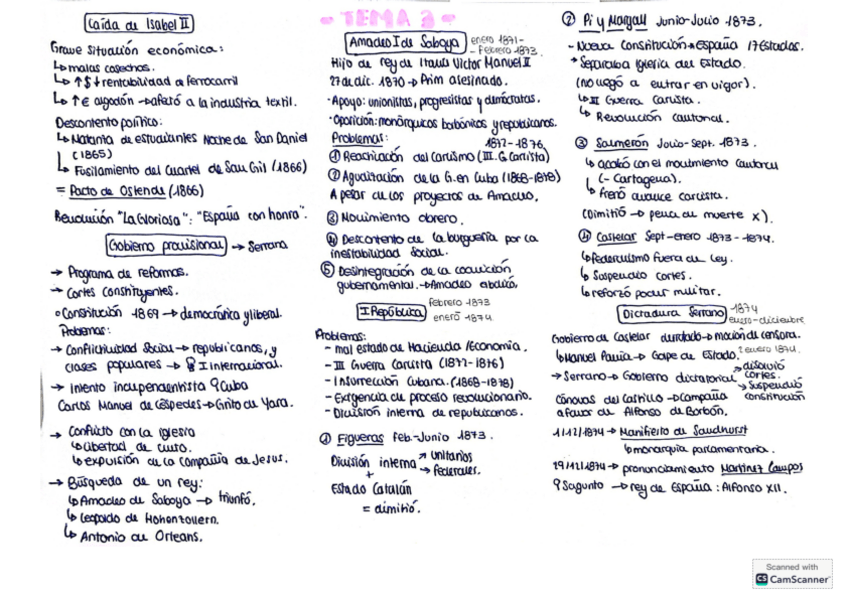 - TEMA 3 -
Caída de Isabel II
Grave situación económica:
↳ malas cosechas.
↳ ↑$ ↓rentabilidad ferrocarril
↳ ↑€ algodón → afectó a la industria textil.
Descontento político:
↳ Matanza de estudiantes Noche de San Daniel
(1865)
↳ Fusilamiento del Cuartel de San Gil (1866)
= Pacto de Ostende (1866)
Revolución "La Gloriosa": "España con honra".
Gobierno provisional → Serrano
→ Programa de reformas.
→ Cortes constituyentes.
Constitución 1869 → democrática y liberal.
Problemas:
→ Conflictividad social → republicanos, y
clases populares → I Internacional.
→ Intento independentista Cuba
Carlos Manuel de Céspedes → Grito de Yara.
→ Conflicto con la iglesia
↳ libertad de culto.
↳ expulsión de la Compañía de Jesus.
→ Búsqueda de un rey:
↳ Amadeo de Saboya → triunfó,
↳ Leopoldo de Hohenzollern.
↳ Antonio de Orleans.
Amadeo I de Saboya enero 1871-
- Febrero 1873.
Hijo de rey de Italia Victor Manuel II
27 de dic. 1870 → Prim asesinado.
· Apoyo: unionistas, progresistas y demócratas.
· Oposición: monárquicos borbónicos y republicanos.
Problemas: 1872-1876
① Reactivación del Carlismo (III G. Carlista)
② Agudización de la G. en Cuba (1868-1878)
A pesar de los proyectos de Amadeo,
③ Movimiento obrero.
④ Descontento de la burguesía por la
inestabilidad social.
⑤ Desintegración de la coalición
gubernamental. → Amadeo abdicó.
I República febrero 1873
enero 1874
Problemas:
- mal estado de Hacienda/Economía.
- III Guerra Carlista (1872-1876)
- Insurrección Cubana. (1868-1878)
- Exigencia de proceso revolucionario.
- División interna de republicanos.
① Figueras feb-Junio 1873.
División interna → unitarios
→ federales.
+
Estado Catalán
= dimitió.
② Pi y Margall Junio-Julio 1873.
- Nueva Constitución → España 17 Estados.
→ Separaba Iglesia del Estado.
(no llegó a entrar en vigor).
↳ III Guerra Carlista.
↳ Revolución cantonal.
③ Salmerón Julio-Sept. 1873.
↳ acabó con el movimiento cantonal
(- Cartagena).
↳ frenó avance carlista.
(Dimitió → pena de muerte X).
④ Castelar Sept-enero 1873-1874.
↳ Federalismo fuera de ley.
↳ Suspendió cortes.
↳ reforzó poder militar.
Dictadura Serrano 1874
enero-diciembre
Gobierno de Castelar derrotado → moción de censura.
↳ Manuel Pavía → Golpe de Estado. 2 enero 1874.
→ Serrano → Gobierno dictatorial → disolvió
cortes.
→ Suspendió
constitución
Cánovas del Castillo → Campaña
a favor de Alfonso de Borbón.
1/12/1874 → Manifiesto de Sandhurst
↳ monarquía parlamentaria.
29/12/1874 → pronunciamiento Martínez Campos
Sagunto → rey de España: Alfonso XII.
Scanned with
CS CamScanner